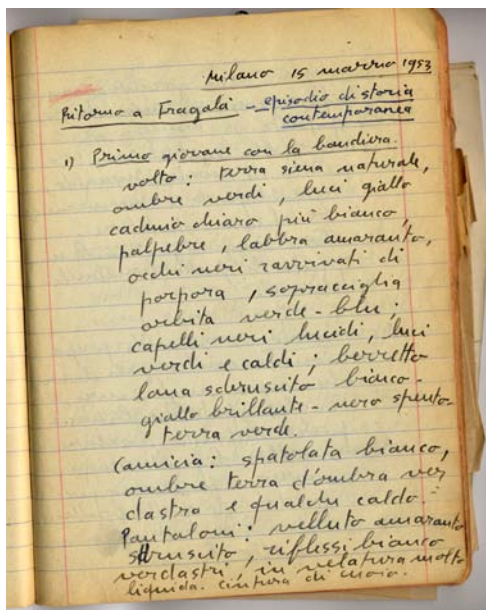 Milano 15 marzo 1953
Ritorno a Fragalà - episodio di storia
contemporanea
1) Primo giovane con la bandiera.
volto: terra siena naturale,
ombre verdi, luci giallo
cadmio chiaro più bianco,
palpebre, labbra amaranto,
occhi neri ravvivati di
porpora, sopracciglia
orbita verde-blu;
capelli neri lucidi, luci
verdi e caldi; berretto
lana sdruscito bianco-
giallo brillante - nero spento-
terra verde.
Camicia: spatolata bianco,
ombre terra d'ombra ver
dastra e qualche caldo.
Pantaloni: velluto amaranto
sdruscito, riflessi bianco
verdastri, in velatura molto
liquida. Cintura di cuoio.